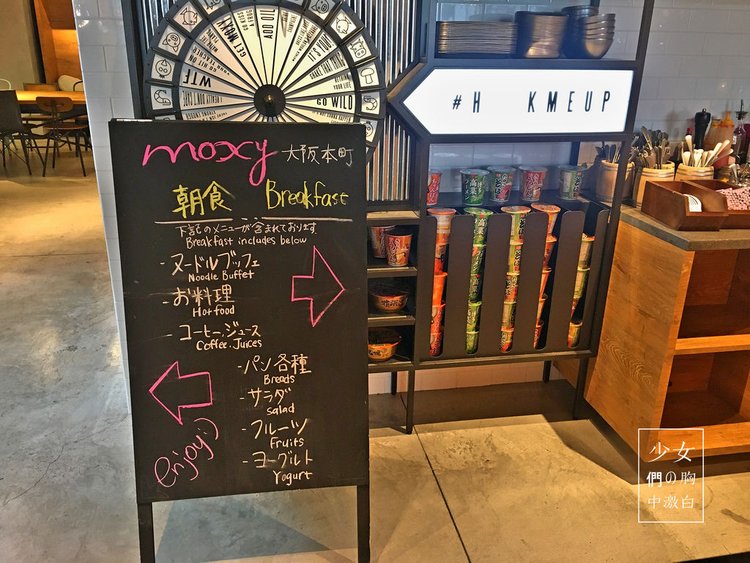 GET MOXY
DO IT
GO WILD
WTF
#H KMEUP
moxy 大阪本町
朝食 Breakfast
下記のメニューが含まれております
Breakfast includes below
・ヌードルブッフェ
Noodle Buffet
・お料理
Hot food
・コーヒー、ジュース
Coffee, Juices
・パン各種
Breads
・サラダ
salad
・フルーツ
Fruits
・ヨーグルト
Yogurt
enjoy:)
少女
們の胸
中激白